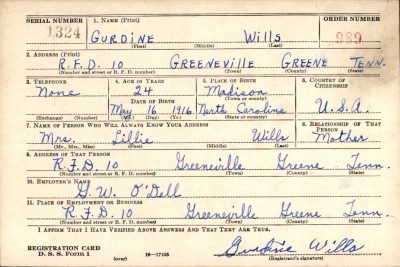 SERIAL NUMBER 1. NAME (Print) ORDER NUMBER
1324 GURDINE Wills 989
(First) (Middle) (Last)
2. ADDRESS (Print)
R.F.D. 10 GREENEVILLE GREENE TENN.
(Number and street or R. F. D. number) (Town) (County) (State)
3. TELEPHONE 4. AGE IN YEARS 5. PLACE OF BIRTH 6. COUNTRY OF CITIZENSHIP
None 24 Madison
(Town or county)
DATE OF BIRTH
May 16 1916 North Carolina U.S.A.
(Exchange) (Number) (Mo.) (Day) (Yr.) (State or country)
7. NAME OF PERSON WHO WILL ALWAYS KNOW YOUR ADDRESS 8. RELATIONSHIP OF THAT PERSON
Mrs. Lillie Wills Mother
(Mr., Mrs., Miss) (First) (Middle) (Last)
9. ADDRESS OF THAT PERSON
R.F.D. 10 Greeneville Greene Tenn.
(Number and street or R. F. D. number) (Town) (County) (State)
10. EMPLOYER'S NAME
G.W. O'Dell
11. PLACE OF EMPLOYMENT OR BUSINESS
R.F.D. 10 Greeneville Greene Tenn.
(Number and street or R. F. D. number) (Town) (County) (State)
I AFFIRM THAT I HAVE VERIFIED ABOVE ANSWERS AND THAT THEY ARE TRUE.
REGISTRATION CARD
D. S. S. Form 1 (over) 16—17105 Gurdine Wills
(Registrant's signature)